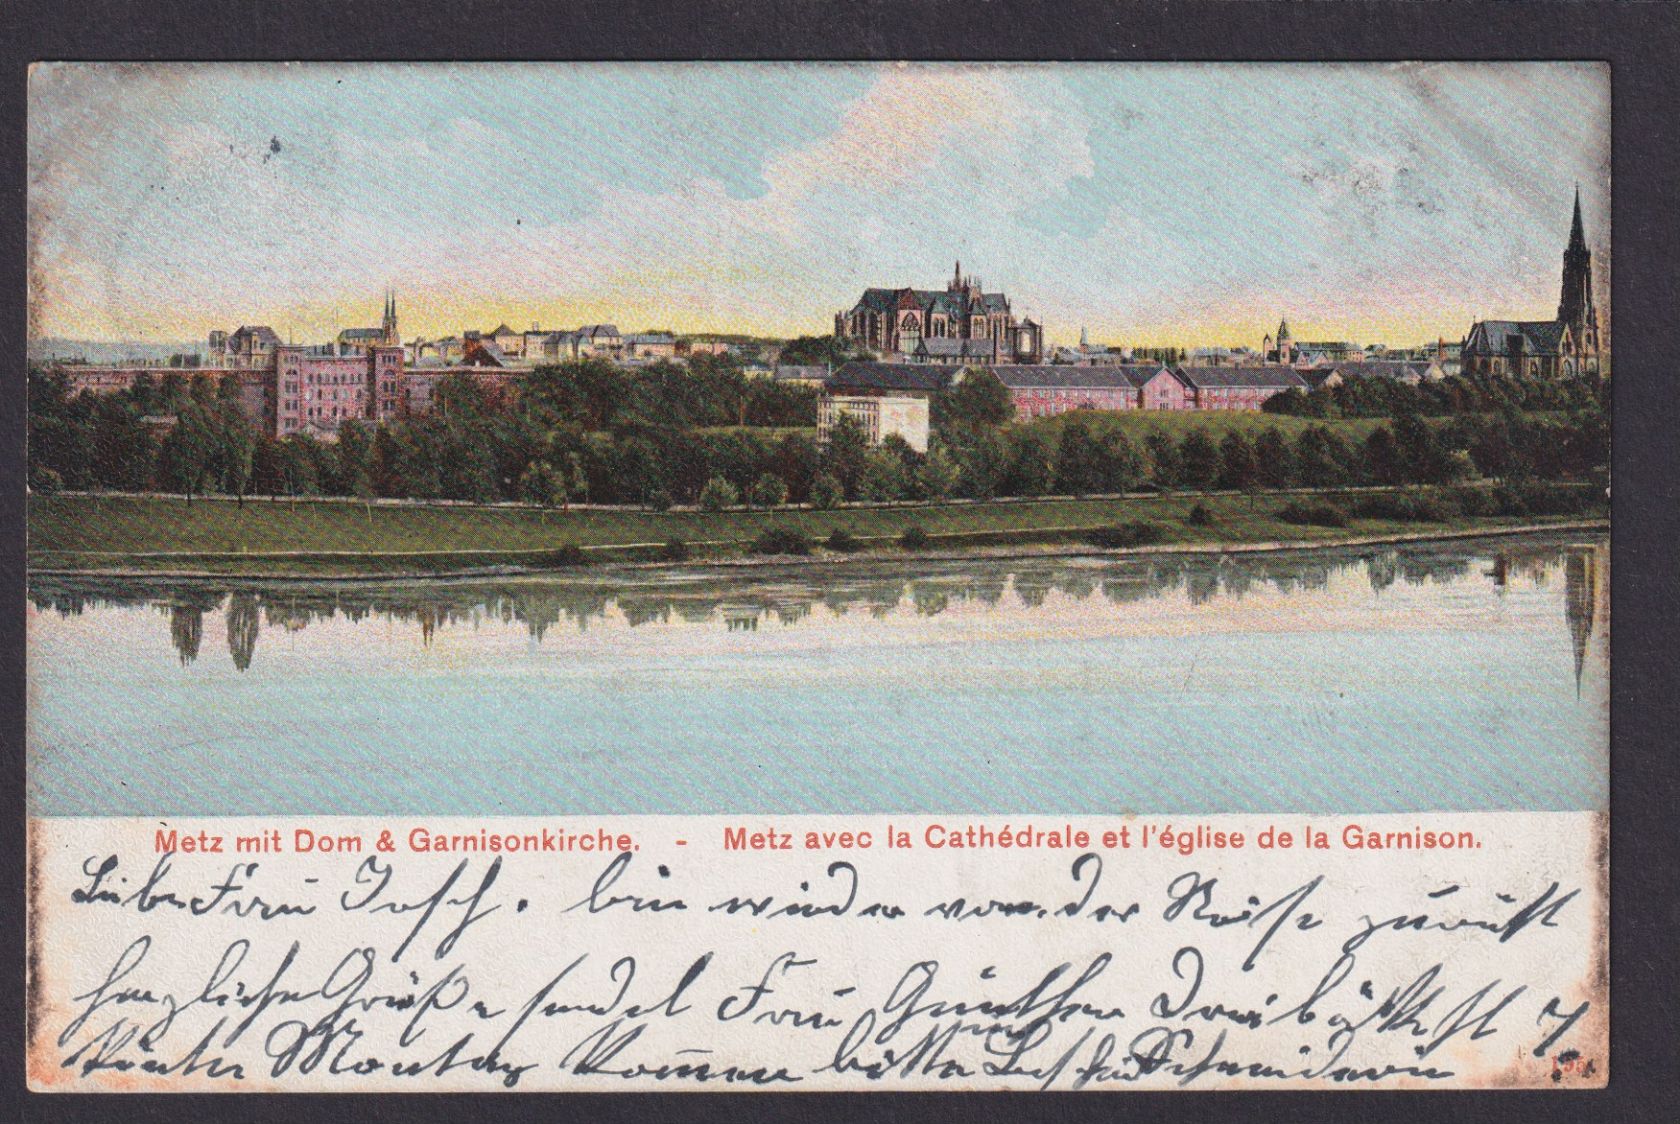 Metz mit Dom & Garnisonkirche. - Metz avec la Cathédrale et l'église de la Garnison.
Liebe Frau Josch. bin wieder von der Reise zurück
herzliche Grüße sendet Frau Günther
Montag komme bitte Schneiderin